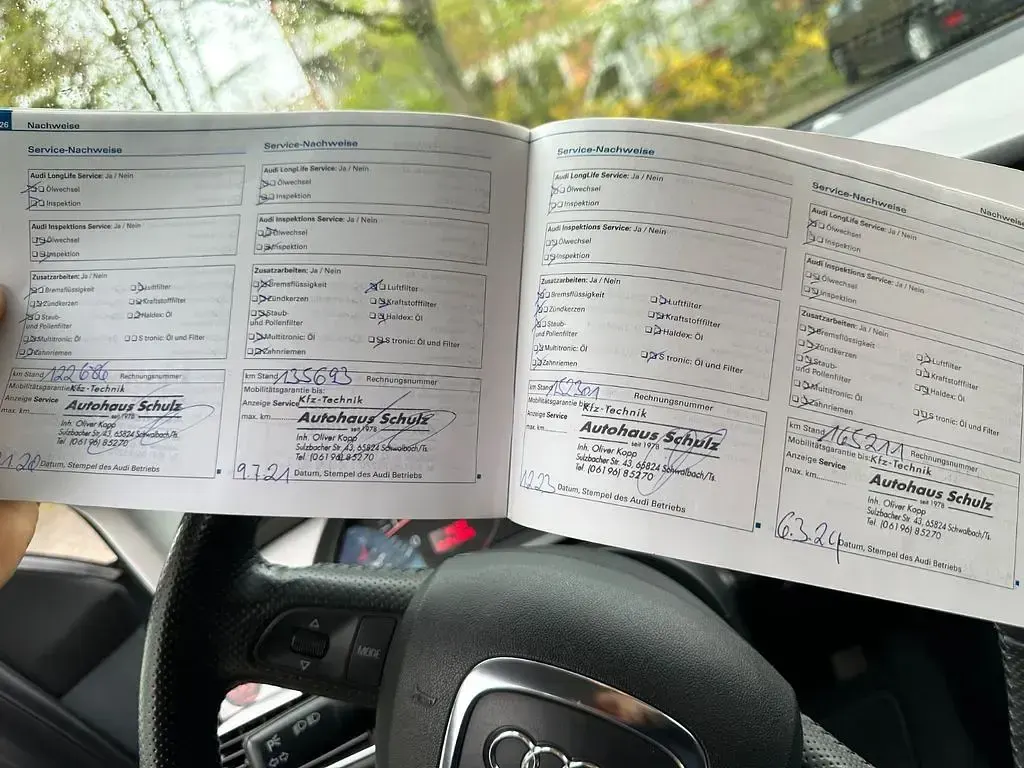 26
Nachweise
Service-Nachweise
Audi LongLife Service: Ja / Nein
Ölwechsel
Inspektion
Audi Inspektions Service: Ja / Nein
Ölwechsel
Inspektion
Zusatzarbeiten: Ja / Nein
Bremsflüssigkeit
Luftfilter
Zündkerzen
Kraftstofffilter
Staub-
und Pollenfilter
Haldex: Öl
Multitronic: Öl
S tronic: Öl und Filter
Zahnriemen
km Stand 122686 Rechnungsnummer
Mobilitätsgarantie
Kfz-Technik
Anzeige Service
Autohaus Schulz
seit 1978
max. km
Inh. Oliver Kopp
Sulzbacher Str. 43, 65824 Schwalbach/Ts.
Tel. (06196) 85270
Datum, Stempel des Audi Betriebs
Service-Nachweise
Audi LongLife Service: Ja / Nein
Ölwechsel
Inspektion
Audi Inspektions Service: Ja / Nein
Ölwechsel
Inspektion
Zusatzarbeiten: Ja / Nein
Bremsflüssigkeit
Luftfilter
Zündkerzen
Kraftstofffilter
Staub-
und Pollenfilter
Haldex: Öl
Multitronic: Öl
S tronic: Öl und Filter
Zahnriemen
km Stand 135693 Rechnungsnummer
Mobilitätsgarantie bis:
Kfz-Technik
Anzeige Service
Autohaus Schulz
seit 1978
max. km
Inh. Oliver Kopp
Sulzbacher Str. 43, 65824 Schwalbach/Ts.
Tel. (06196) 85270
9.7.21 Datum, Stempel des Audi Betriebs
Service-Nachweise
Audi LongLife Service: Ja / Nein
Ölwechsel
Inspektion
Audi Inspektions Service: Ja / Nein
Ölwechsel
Inspektion
Zusatzarbeiten: Ja / Nein
Bremsflüssigkeit
Luftfilter
Zündkerzen
Kraftstofffilter
Staub-
und Pollenfilter
Haldex: Öl
Multitronic: Öl
S tronic: Öl und Filter
Zahnriemen
km Stand Rechnungsnummer
Mobilitätsgarantie bis:
Kfz-Technik
Anzeige Service
Autohaus Schulz
seit 1978
max. km
Inh. Oliver Kopp
Sulzbacher Str. 43, 65824 Schwalbach/Ts.
Tel. (06196) 85270
Datum, Stempel des Audi Betriebs
Nachweise
Service-Nachweise
Audi LongLife Service: Ja / Nein
Ölwechsel
Inspektion
Audi Inspektions Service: Ja / Nein
Ölwechsel
Inspektion
Zusatzarbeiten: Ja / Nein
Bremsflüssigkeit
Luftfilter
Zündkerzen
Kraftstofffilter
Staub-
und Pollenfilter
Haldex: Öl
Multitronic: Öl
S tronic: Öl und Filter
Zahnriemen
km Stand 165211 Rechnungsnummer
Mobilitätsgarantie bis:
Kfz-Technik
Anzeige Service
Autohaus Schulz
seit 1978
max. km
Inh. Oliver Kopp
Sulzbacher Str. 43, 65824 Schwalbach/Ts.
Tel. (06196) 85270
6.3.24 Datum, Stempel des Audi Betriebs
MODE